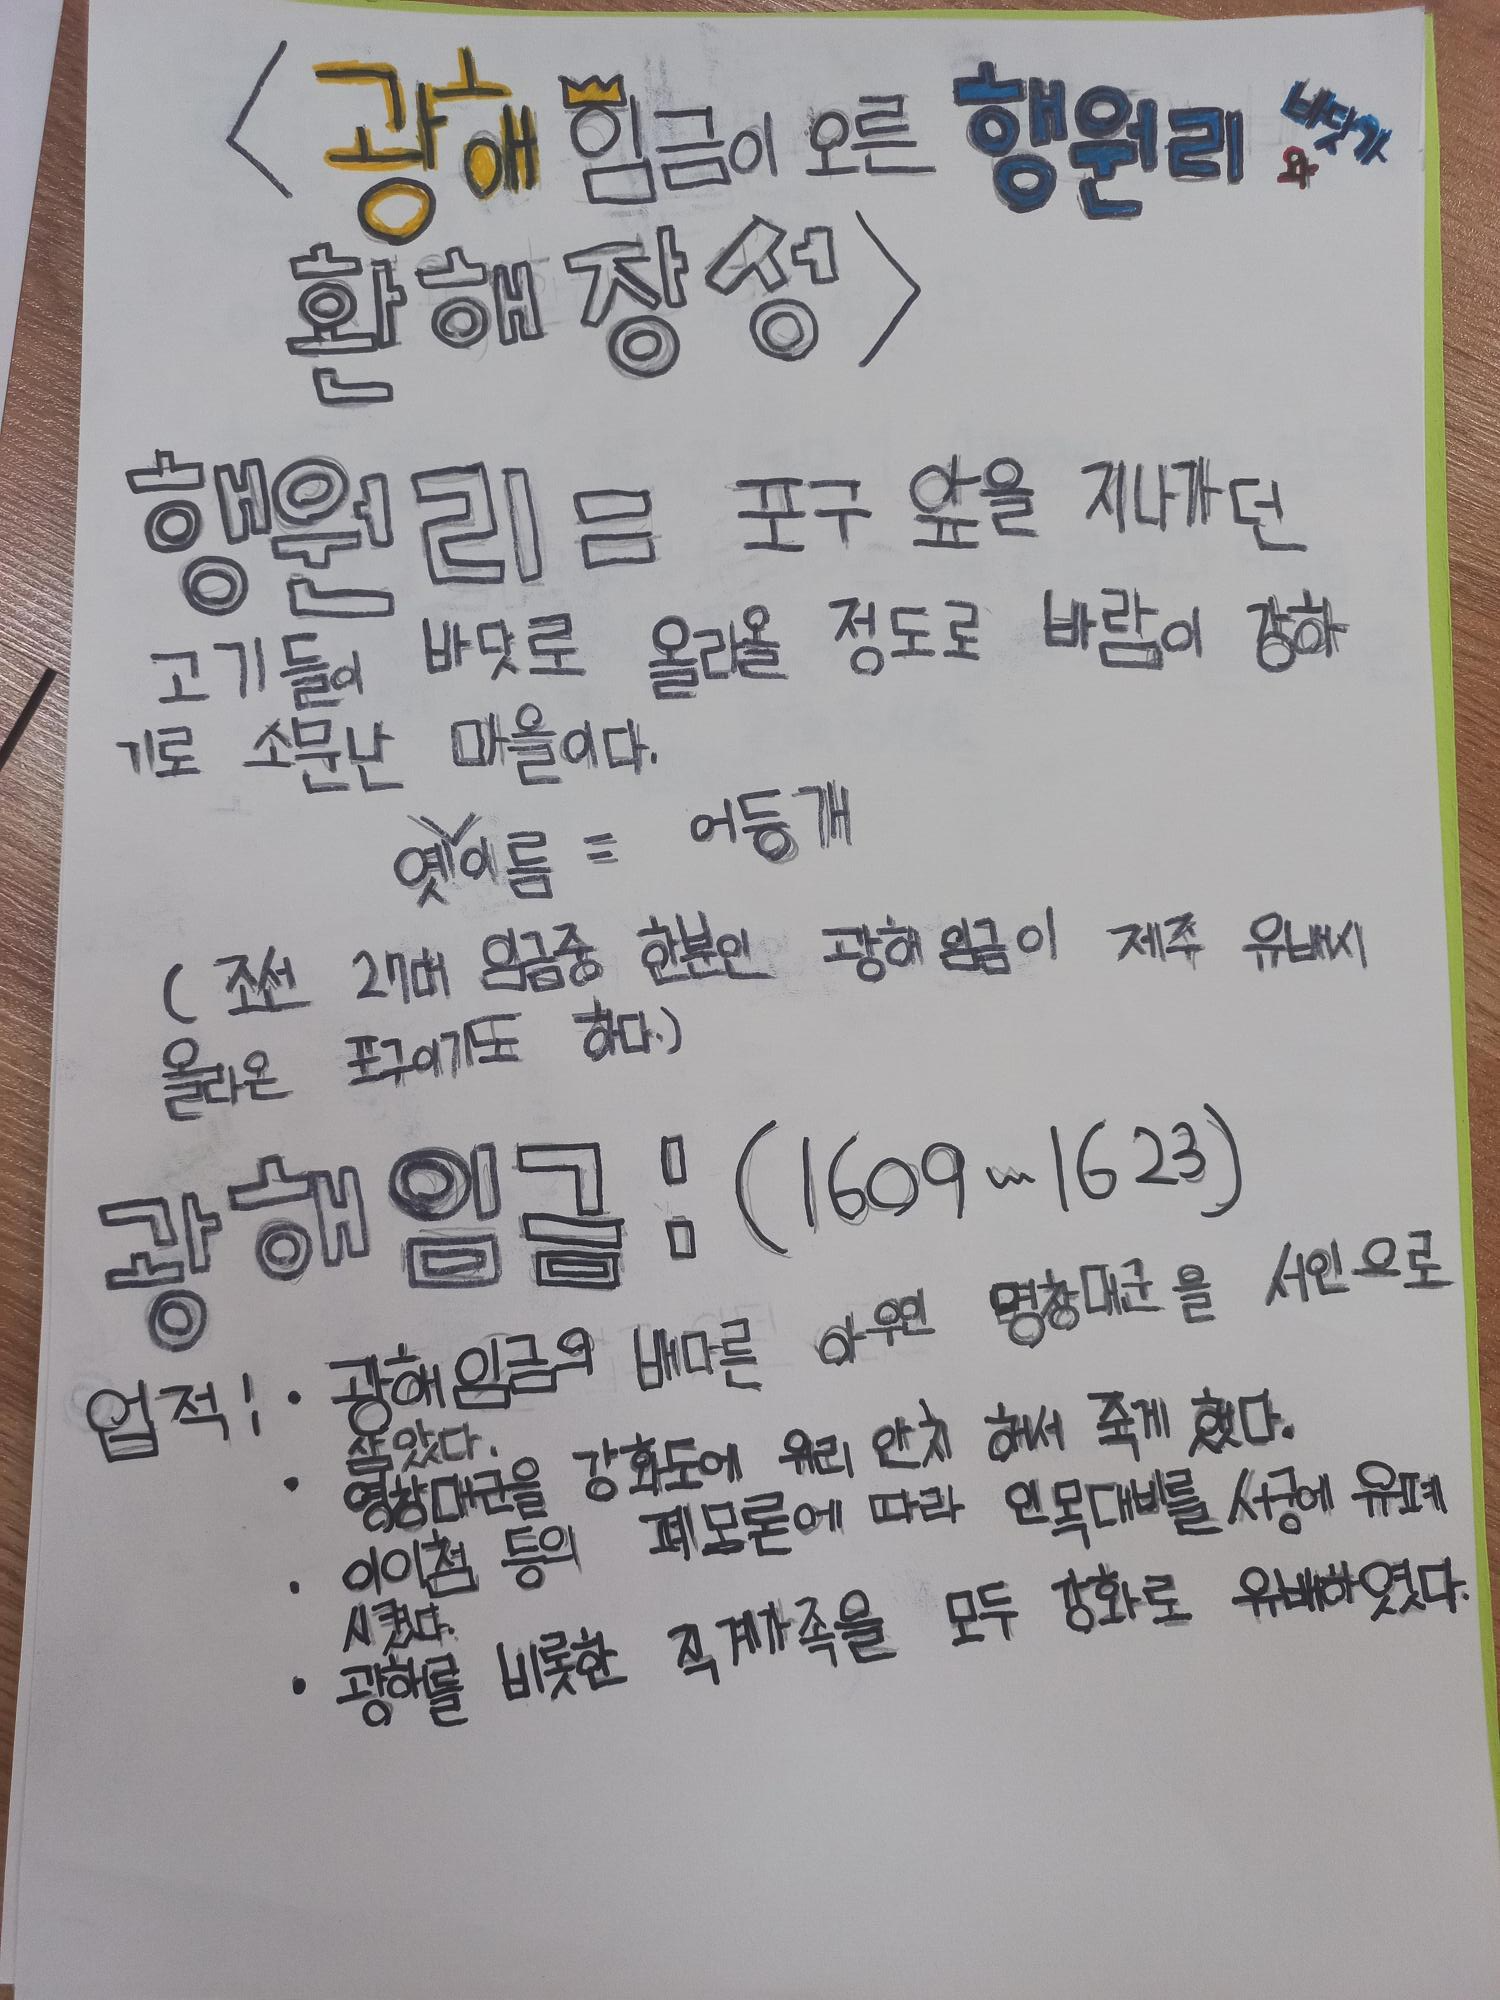 <광해 임금이 오른 행원리 바닷가와
환해장성>
행원리 = 포구 앞을 지나가던
고기들이 바닷로 올라올 정도로 바람이 강하
기로 소문난 마을이다.
옛∨이름 = 어등개
( 조선 27대 임금중 한분인 광해임금이 제주 유배시
올라온 포구이기도 하다.)
광해임금 : (1609~1623)
업적! · 광해임금의 배다른 아우인 영창대군을 서인으로
삼았다.
· 영창대군을 강화도에 위리 안치 해서 죽게 했다.
· 이이첨 등의 폐모론에 따라 인목대비를 서궁에 유폐
시켰다.
· 광해를 비롯한 직계가족을 모두 강화로 유배하였다.